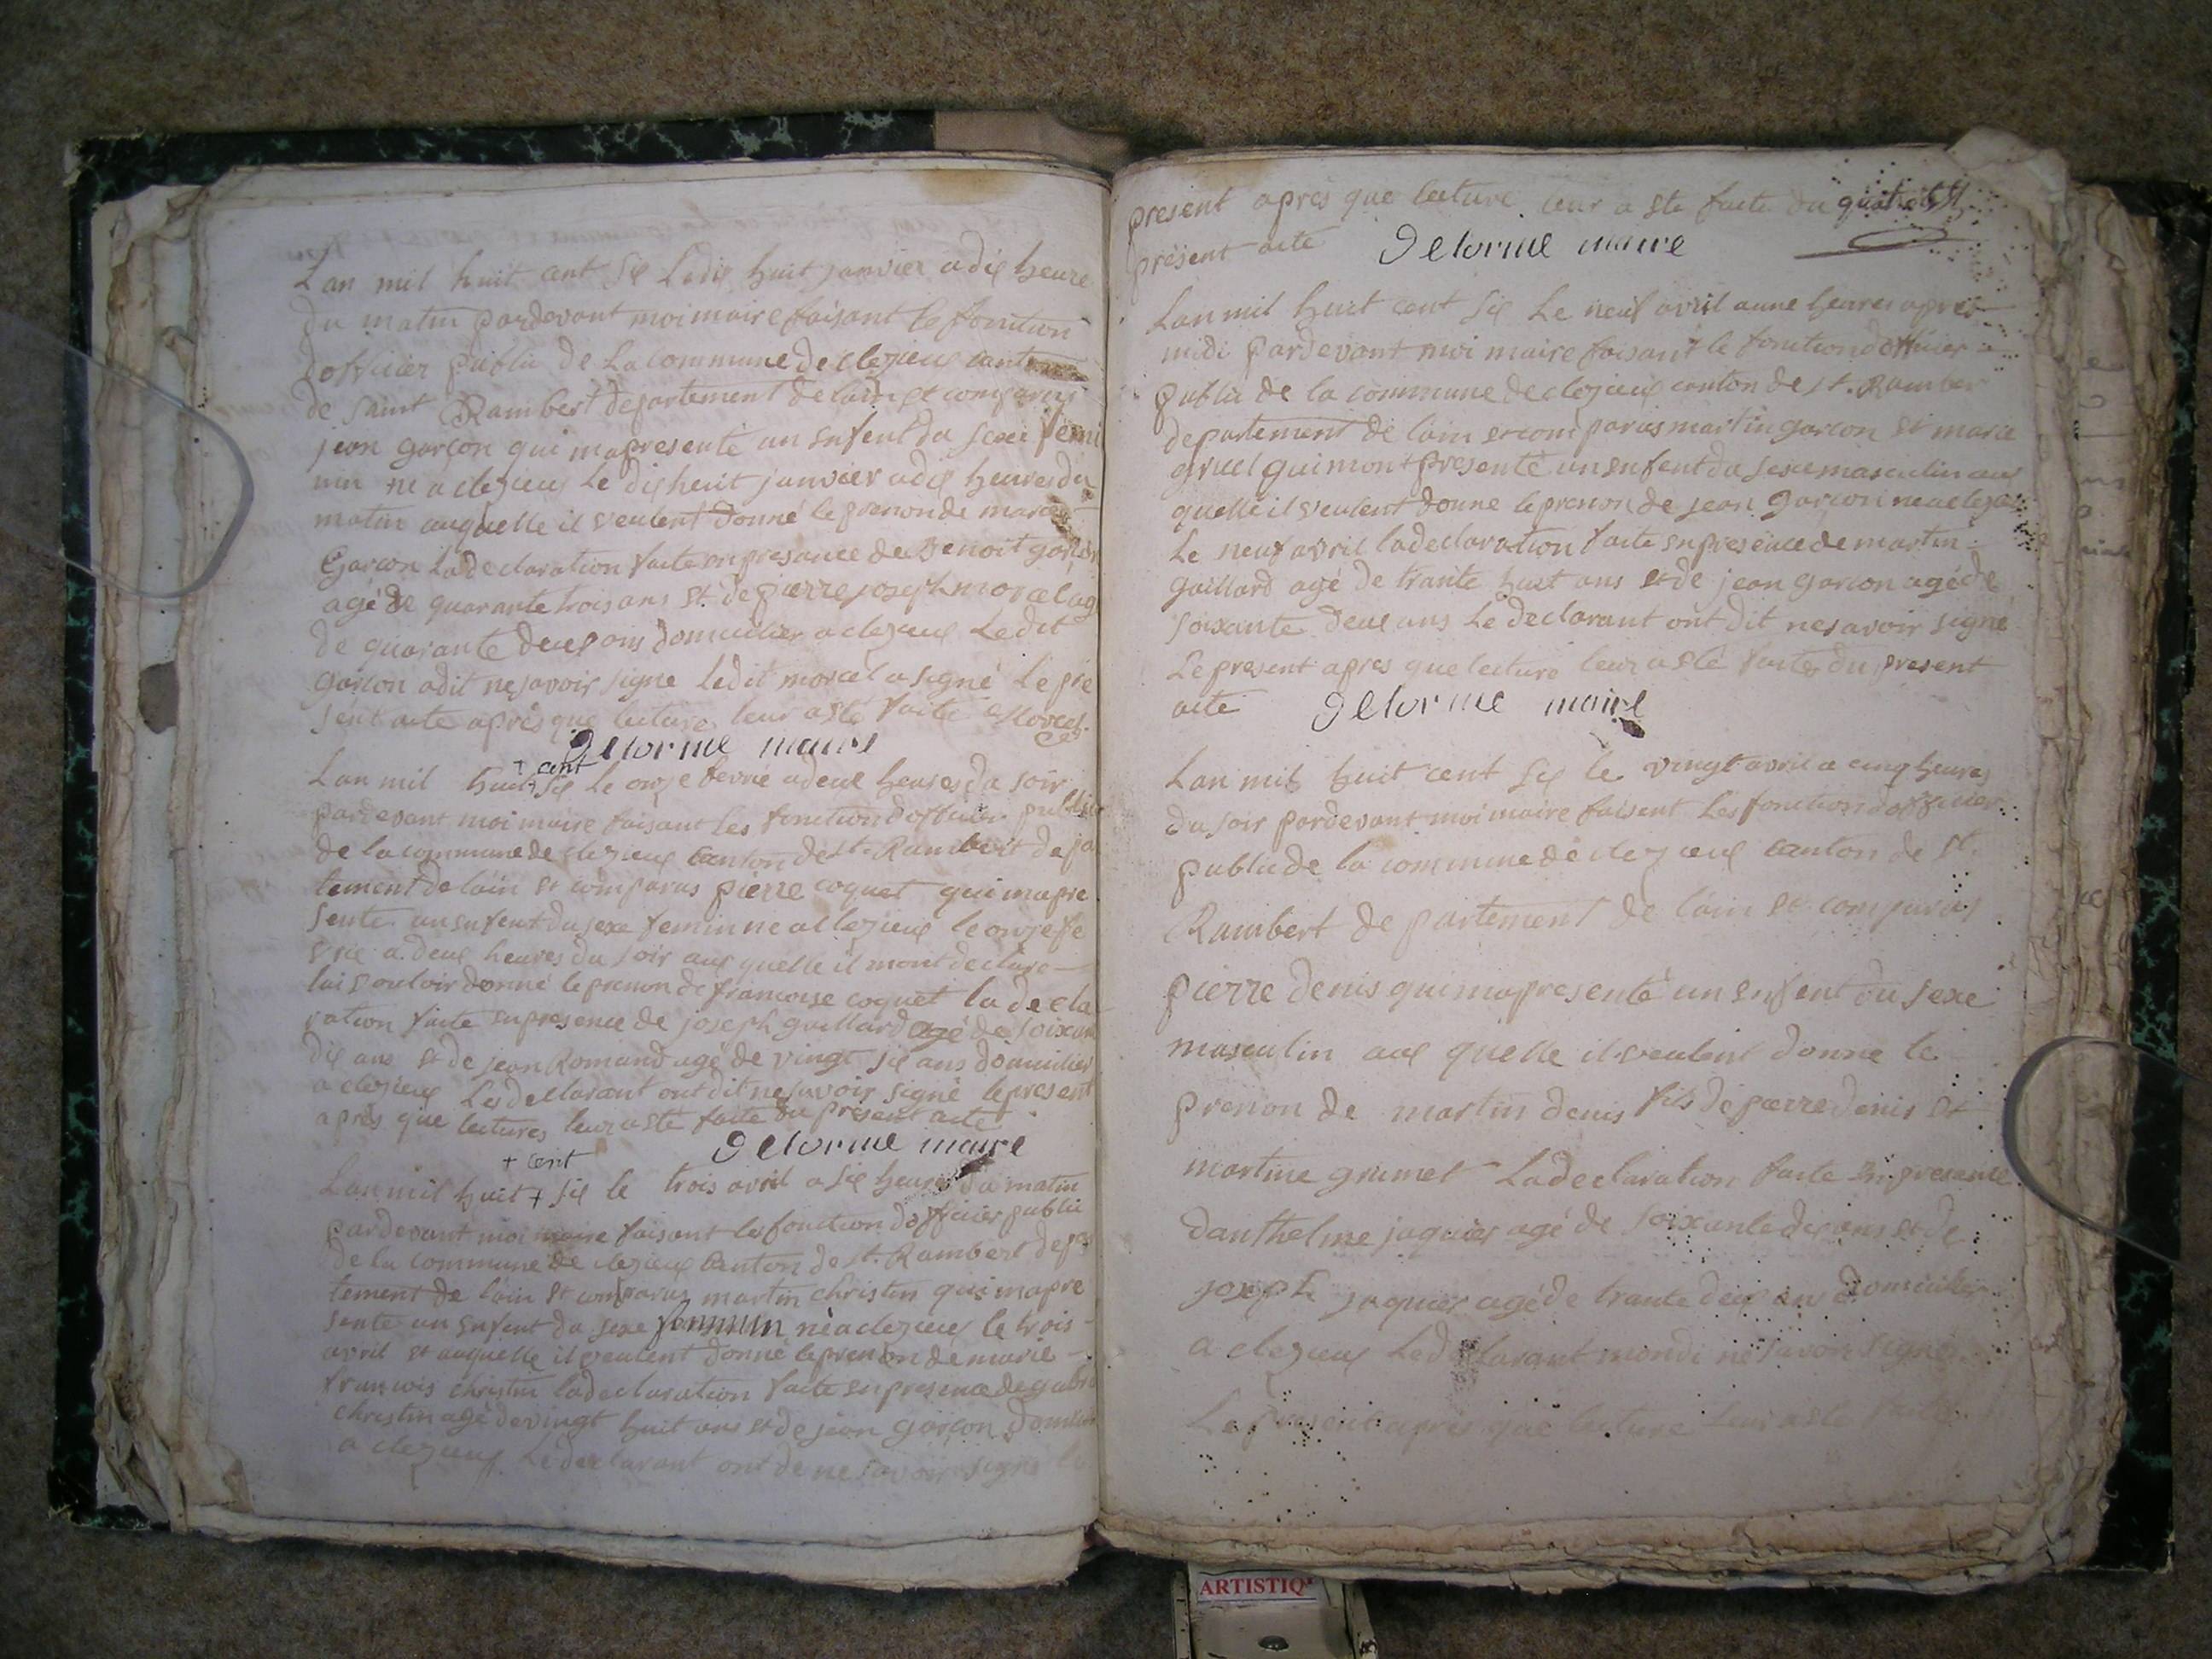 Lan mil huit cent six Ledix huit janvier adix heure
du matin pardevant moi maire faisant le fonction
dofficier publiu de La commune de clezieux canton
de saint Rambert departement de lain et comparus
jean garcon qui mapresenté un enfent du sexe femi
nin ne a clezieux Le dixheuit janvier adix heures du
matin auquelle il veulent donné le prenon de
Garcon Ladeclaration faite enpresance de Benoit garcon
agé de quarante trois ans et de pierre joseph morcel ag
de quarante deux ans domicilier a clezieux Ledit
garcon adit nesavoir signe ledit morcel a signé Le pre
sent acte aprés que lecture leur a eté faite Morcel
Delorme maire
+ cent
Lan mil huit + six le onze fevrie adeux heures du soir
pardevant moi maire faisant les fonction dofficier public
de la commune de clezieux canton de st. Rambert depa
tement de lain et comparus pierre coquet qui mapre
senté un enfent du sexe feminne a clezieux le onze fe
vrie a deux heures du soir aux quelle il mont declare
lui vouloir donné le prenon de francoise coquet la decla
ration faite enpresence de joseph guillard agé de soixan
dix ans et de jean Romand agé de vingt six ans domicilier
a clezieux Les declarant ont dit ne savoir signé le present
aprés que lectures leur a eté faite du present acte
Delorme maire
+ cent
Lan mil huit + six le trois avril a six heures du matin
pardevant moi maire faisant les fonction dofficier publiu
de la commune de clezieux canton de st. Rambert depar
tement de lain et comparus martin christin qui mapre
sente un enfent du sexe feminin né a clezieux le trois
avril et auquelle il veulent donné le prenon de marie
francois christin ladeclaration faite enpresence de
christin agé de vingt huit ans et de jean garcon domicil
a clezieux Le declarant ont de ne savoir signe
present aprés que lecture leur a ete faite du
présent acte Delorme maire
Lan mil huit cent six Le neuf avril aune heures aprés
midi pardevant moi maire faisant le fonction dofficier
publiu de la commune de clezieux canton de st. Ramber
departement de lain et comparus martin garcon et marie
gruel qui mont presenté un enfent du sexe masculin aux
quelle il veulent donne le prenon de jean garcon ne a clezieux
Le neuf avril ladeclaration faite enpresence de martin
gaillard agé de trante huit ans et de jean garcon agé de
soixante deux ans Le declarant ont dit ne savoir signé
Le present apres que lecture leur a eté faite du present
acte Delorme maire
Lan mil huit cent six le vingt avril a cinq heures
du soir pardevant moi maire faisent Les fonction dofficier
publiu de la commune de clezieux canton de st.
Rambert departement de lain et comparus
pierre denis qui mapresenté un enfent du sexe
masculin aux quelle il veulent donne le
prenon de martin denis fils de pierre denis et
martine grumet Ladeclaration faite enpresence
danthelme jaquier agé de soixante dix ans et de
joseph jaquier agé de trante deux ans domicilier
a clezieux Le declarant mondi ne savoir signé
Le present apres que lecture leur a ete faite
ARTISTIQ